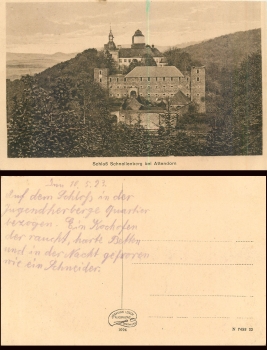 Schloß Schnellenberg bei Attendorn
Den 11. 5. 32
Auf dem Schloß in der
Jugendherberge Quartier
bezogen. Ein Kochofen
der raucht, harte Betten
und in der Nacht gefroren
wie ein Schneider.